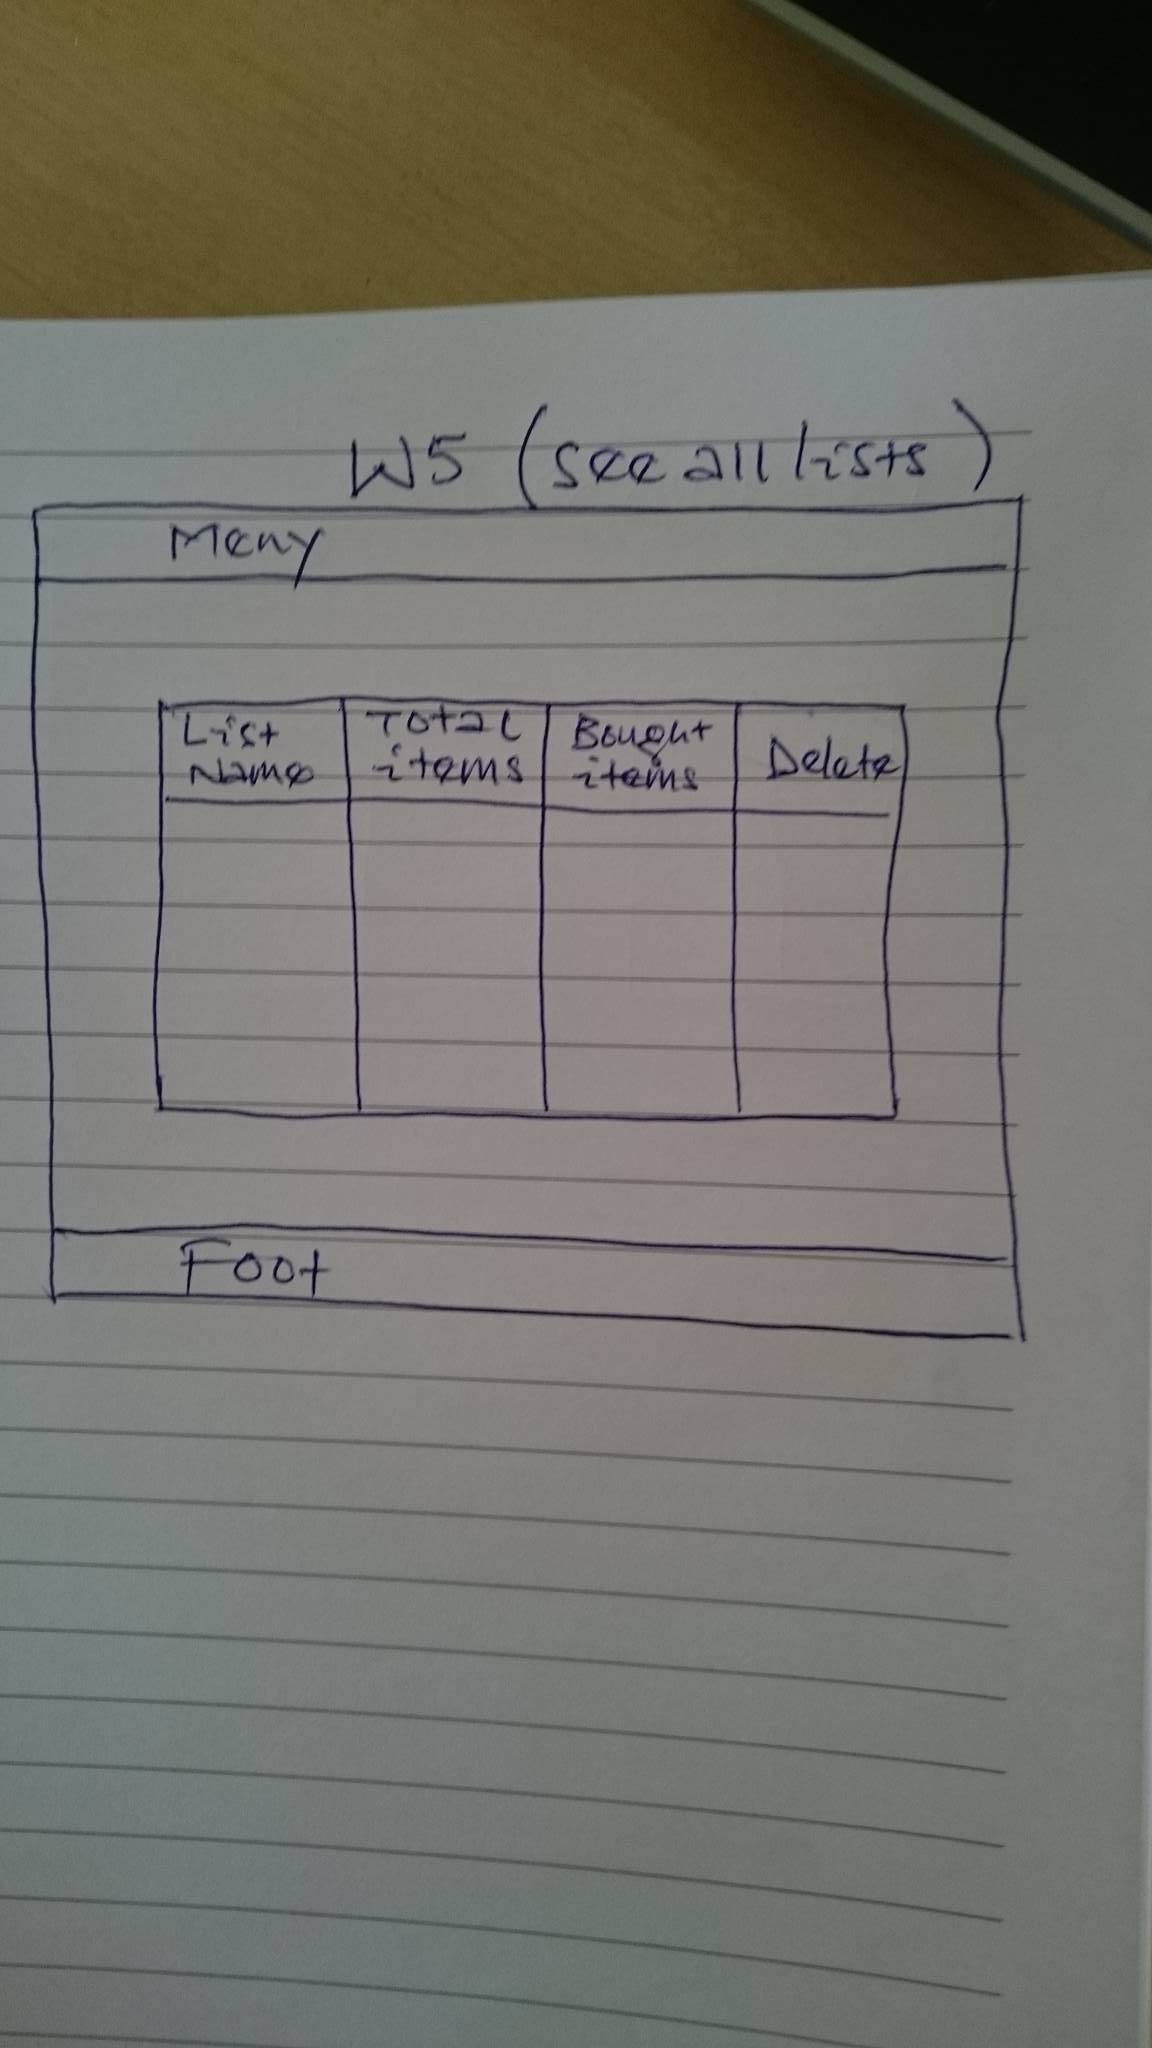 W5 (see all lists)
Meny
List Name
Total items
Bought items
Delete
Foot